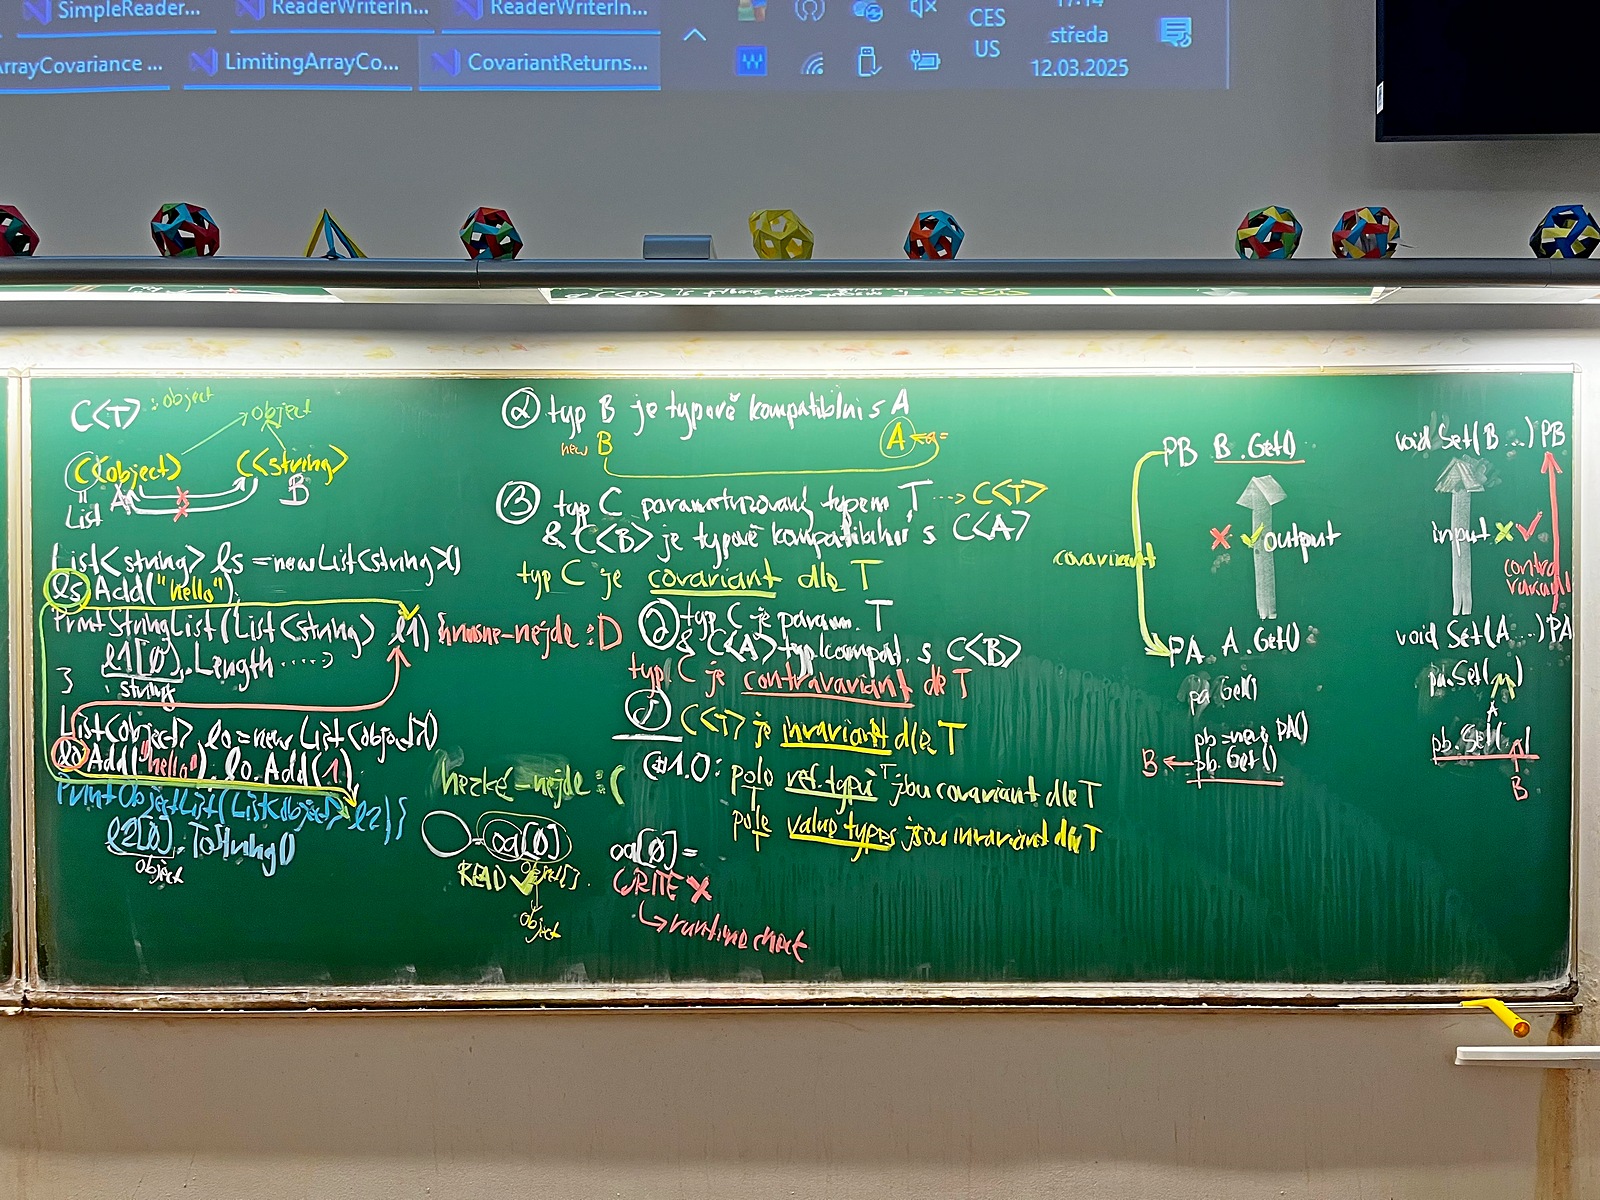 SimpleReader...
ReaderWriterIn...
ReaderWriterIn...
17:14
CES
US
středa
12.03.2025
ArrayCovariance ...
LimitingArrayCo...
CovariantReturns...
C<T> : object
object
C<object>
C<string>
A
B
List
List<string> ls = new List<string>()
ls.Add("hello")
PrintStringList(List<string> l1) {
l1[0].Length ....
string
}
hnusné - nejde :D
List<object> lo = new List<object>()
lo.Add("hello"). lo.Add(1)
PrintObjectList(List<object> l2) {
l2[0].ToString()
object
hezké - nejde :(
oa[0]
READ ✓
object[].
object
oa[0] =
WRITE ✗
↳ runtime check
α typ B je typově kompatibilní s A
new B
A
β typ C parametrizovaný typem T ...> C<T>
& C<B> je typově kompatibilní s C<A>
typ C je covariant dle T
typ C je param. T
& C<A> typ. kompat. s C<B>
typ C je contravariant dle T
C<T> je invariant dle T
C# 1.0: pole ref. typů T jsou covariant dle T
pole T value types jsou invariant dle T
PB B.Get()
✗ ✓ output
covariant
PA A.Get()
pa.Get()
pb = new PA()
B ← pb.Get()
void Set(B ...) PB
input ✗ ✓
contravariant
void Set(A ...) PA
pa.Set( )
A
pb.Set( )
B